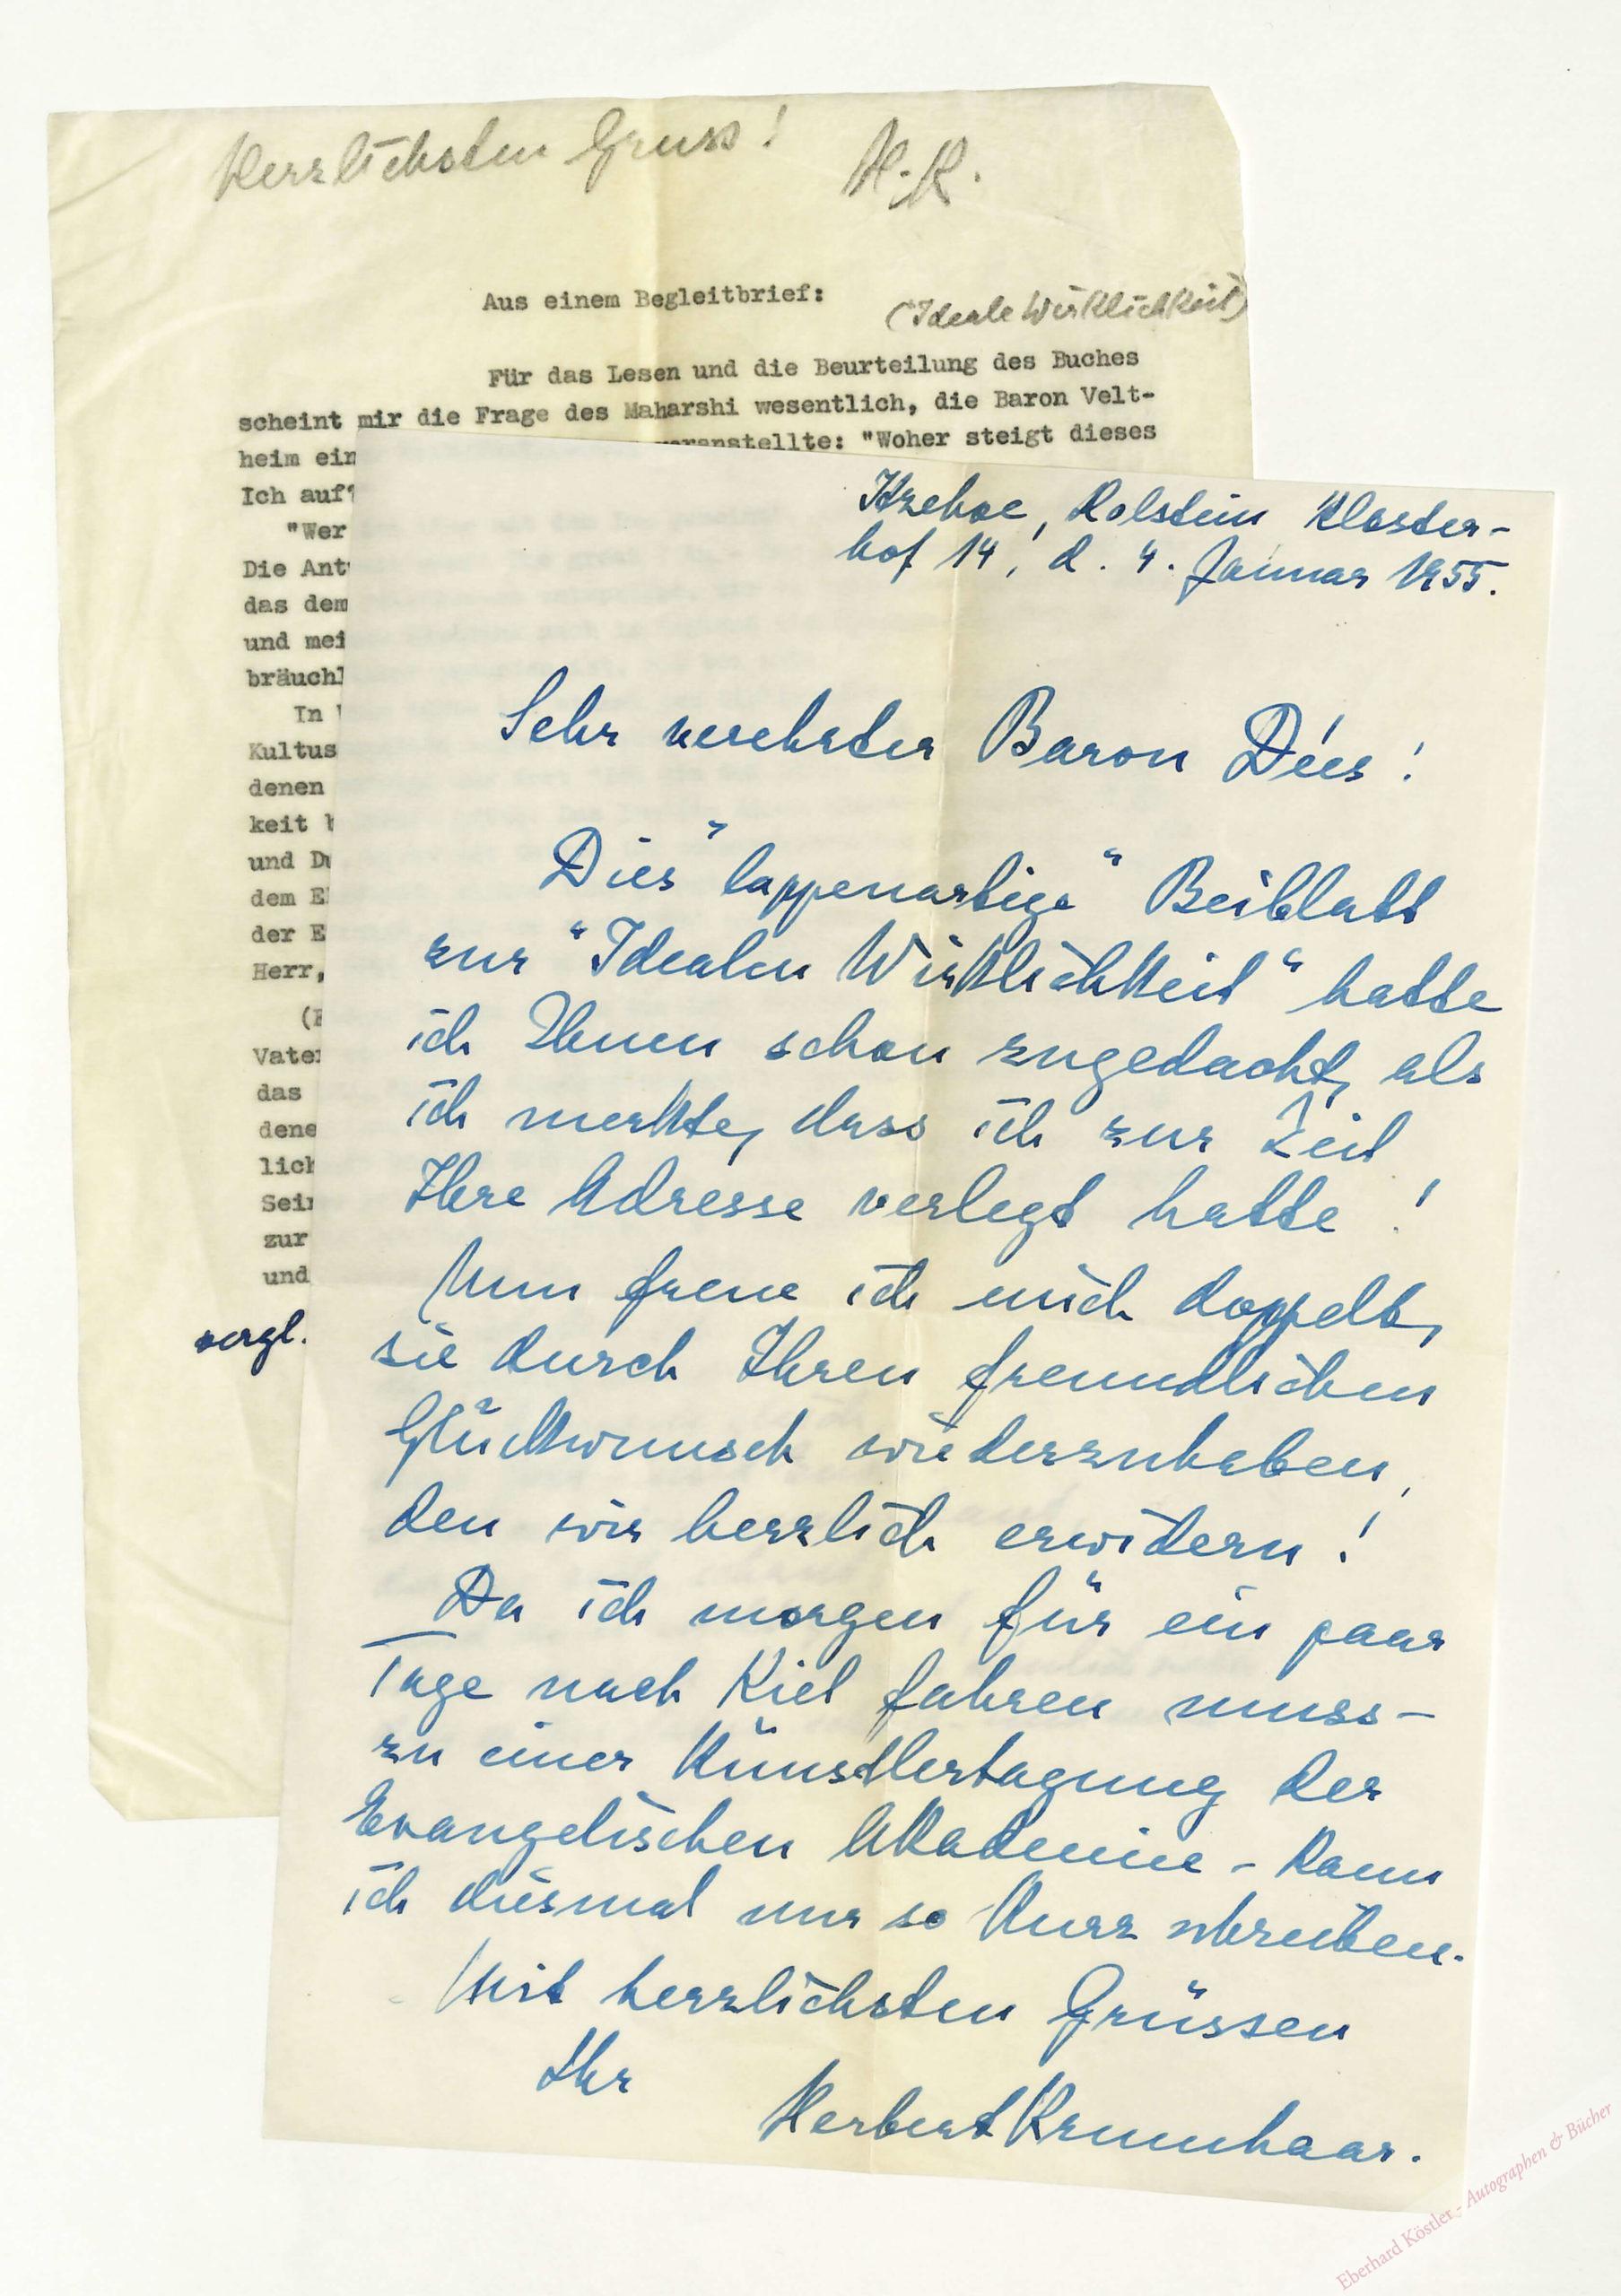 Herzlichsten Gruss! H.K.
Aus einem Begleitbrief:
(Ideale Wirklichkeit)
Für das Lesen und die Beurteilung des Buches
scheint mir die Frage des Maharshi wesentlich, die Baron Velt-
heim ein voranstellte: "Woher steigt dieses
Ich auf
"Wer
Die Ant
das dem
und mei
bräuchl
In
Kultus
denen
keit
und Du
dem E
der E
Herr,
Vater
das
dene
lich
Sein
zur
und
vergl.
Itzehoe, Holstein Kloster-
hof 14, d. 4. Januar 1955.
Sehr verehrter Baron Dées!
Dies "lappenartige" Beiblatt
zur "Idealen Wirklichkeit" hatte
ich Ihnen schon zugedacht, als
ich merkte, dass ich zur Zeit
Ihre Adresse verlegt hatte!
Nun freue ich mich doppelt,
sie durch Ihren freundlichen
Glückwunsch wiederzuhaben,
den wir herzlich erwidern!
Da ich morgen für ein paar
Tage nach Kiel fahren muss-
zu einer Künstlertagung der
Evangelischen Akademie - kann
ich diesmal nur so kurz schreiben.
Mit herzlichsten Grüssen
Ihr
Herbert Krumhaar.
Eberhard Köstler - Autographen & Bücher